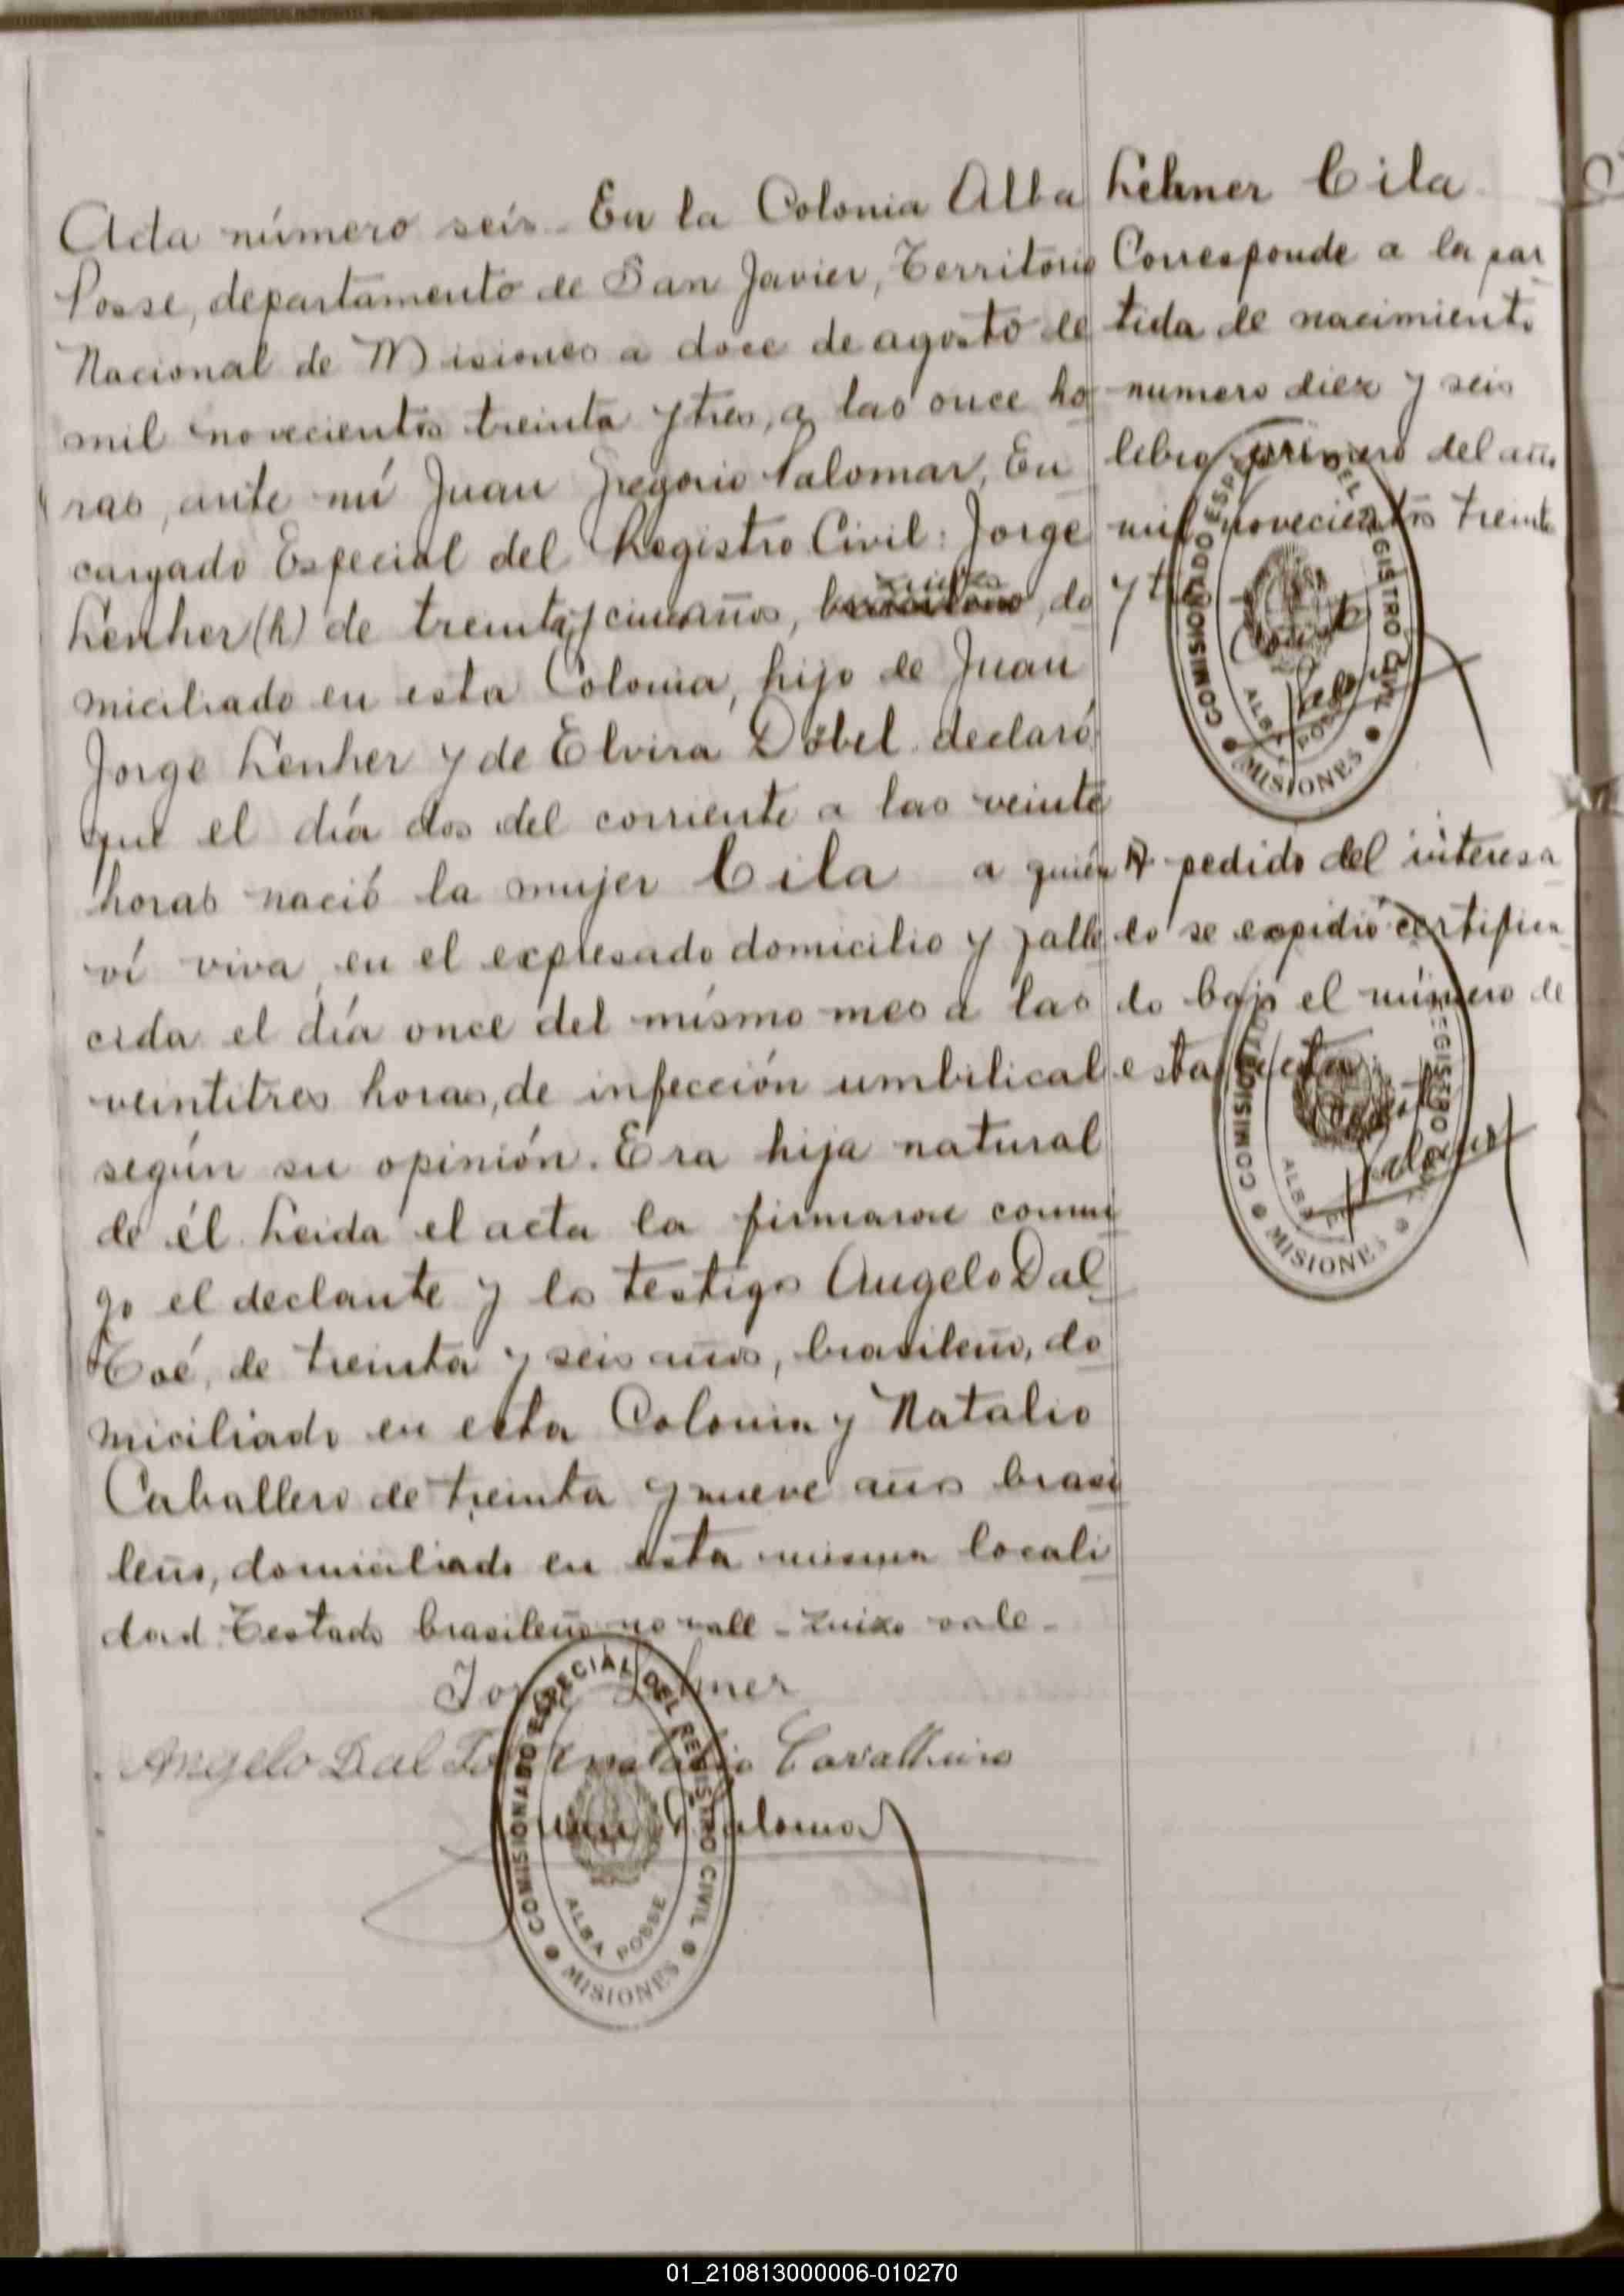 Acta número seis. En la Colonia Alba
Posse, departamento de San Javier, Territorio
Nacional de Misiones a doce de agosto de
mil novecientos treinta y tres, a las once ho
ras, ante mí Juan Gregorio Palomar, En
cargado Especial del Registro Civil: Jorge
Lenher (h) de treinta y cinco años, brasileño, do
zuizo
miciliado en esta Colonia, hijo de Juan
Jorge Lenher y de Elvira Döbel declaró
que el día dos del corriente a las veinte
horas nació la mujer Cila a quién
ví viva, en el expresado domicilio y falle
cida el día once del mismo mes a las
veintitres horas, de infección umbilical
según su opinión. Era hija natural
de él. Leida el acta la firmaron conmi
go el declante y los testigos Angelo Dal
Toé, de treinta y seis años, brasileño, do
miciliado en esta Colonia y Natalio
Caballero de treinta y nueve años brasi
leño, domiciliado en esta misma locali
dad. Testado brasileño no vale - zuizo vale -
Lehner Cila
Corresponde a la par
tida de nacimiento
numero diez y seis
libro primero del año
mil novecientos treinta
y tres
A pedido del interesa
do se expidió certifica
do bajo el número de
esta acta
Jorge Lehner
Angelo Dal Toé Natalio Cavalheiro
Juan Palomar
COMISIONADO ESPECIAL DEL REGISTRO CIVIL
ALBA POSSE
MISIONES
COMISIONADO ESPECIAL DEL REGISTRO CIVIL
ALBA POSSE
MISIONES
COMISIONADO ESPECIAL DEL REGISTRO CIVIL
ALBA POSSE
MISIONES
01_210813000006-010270